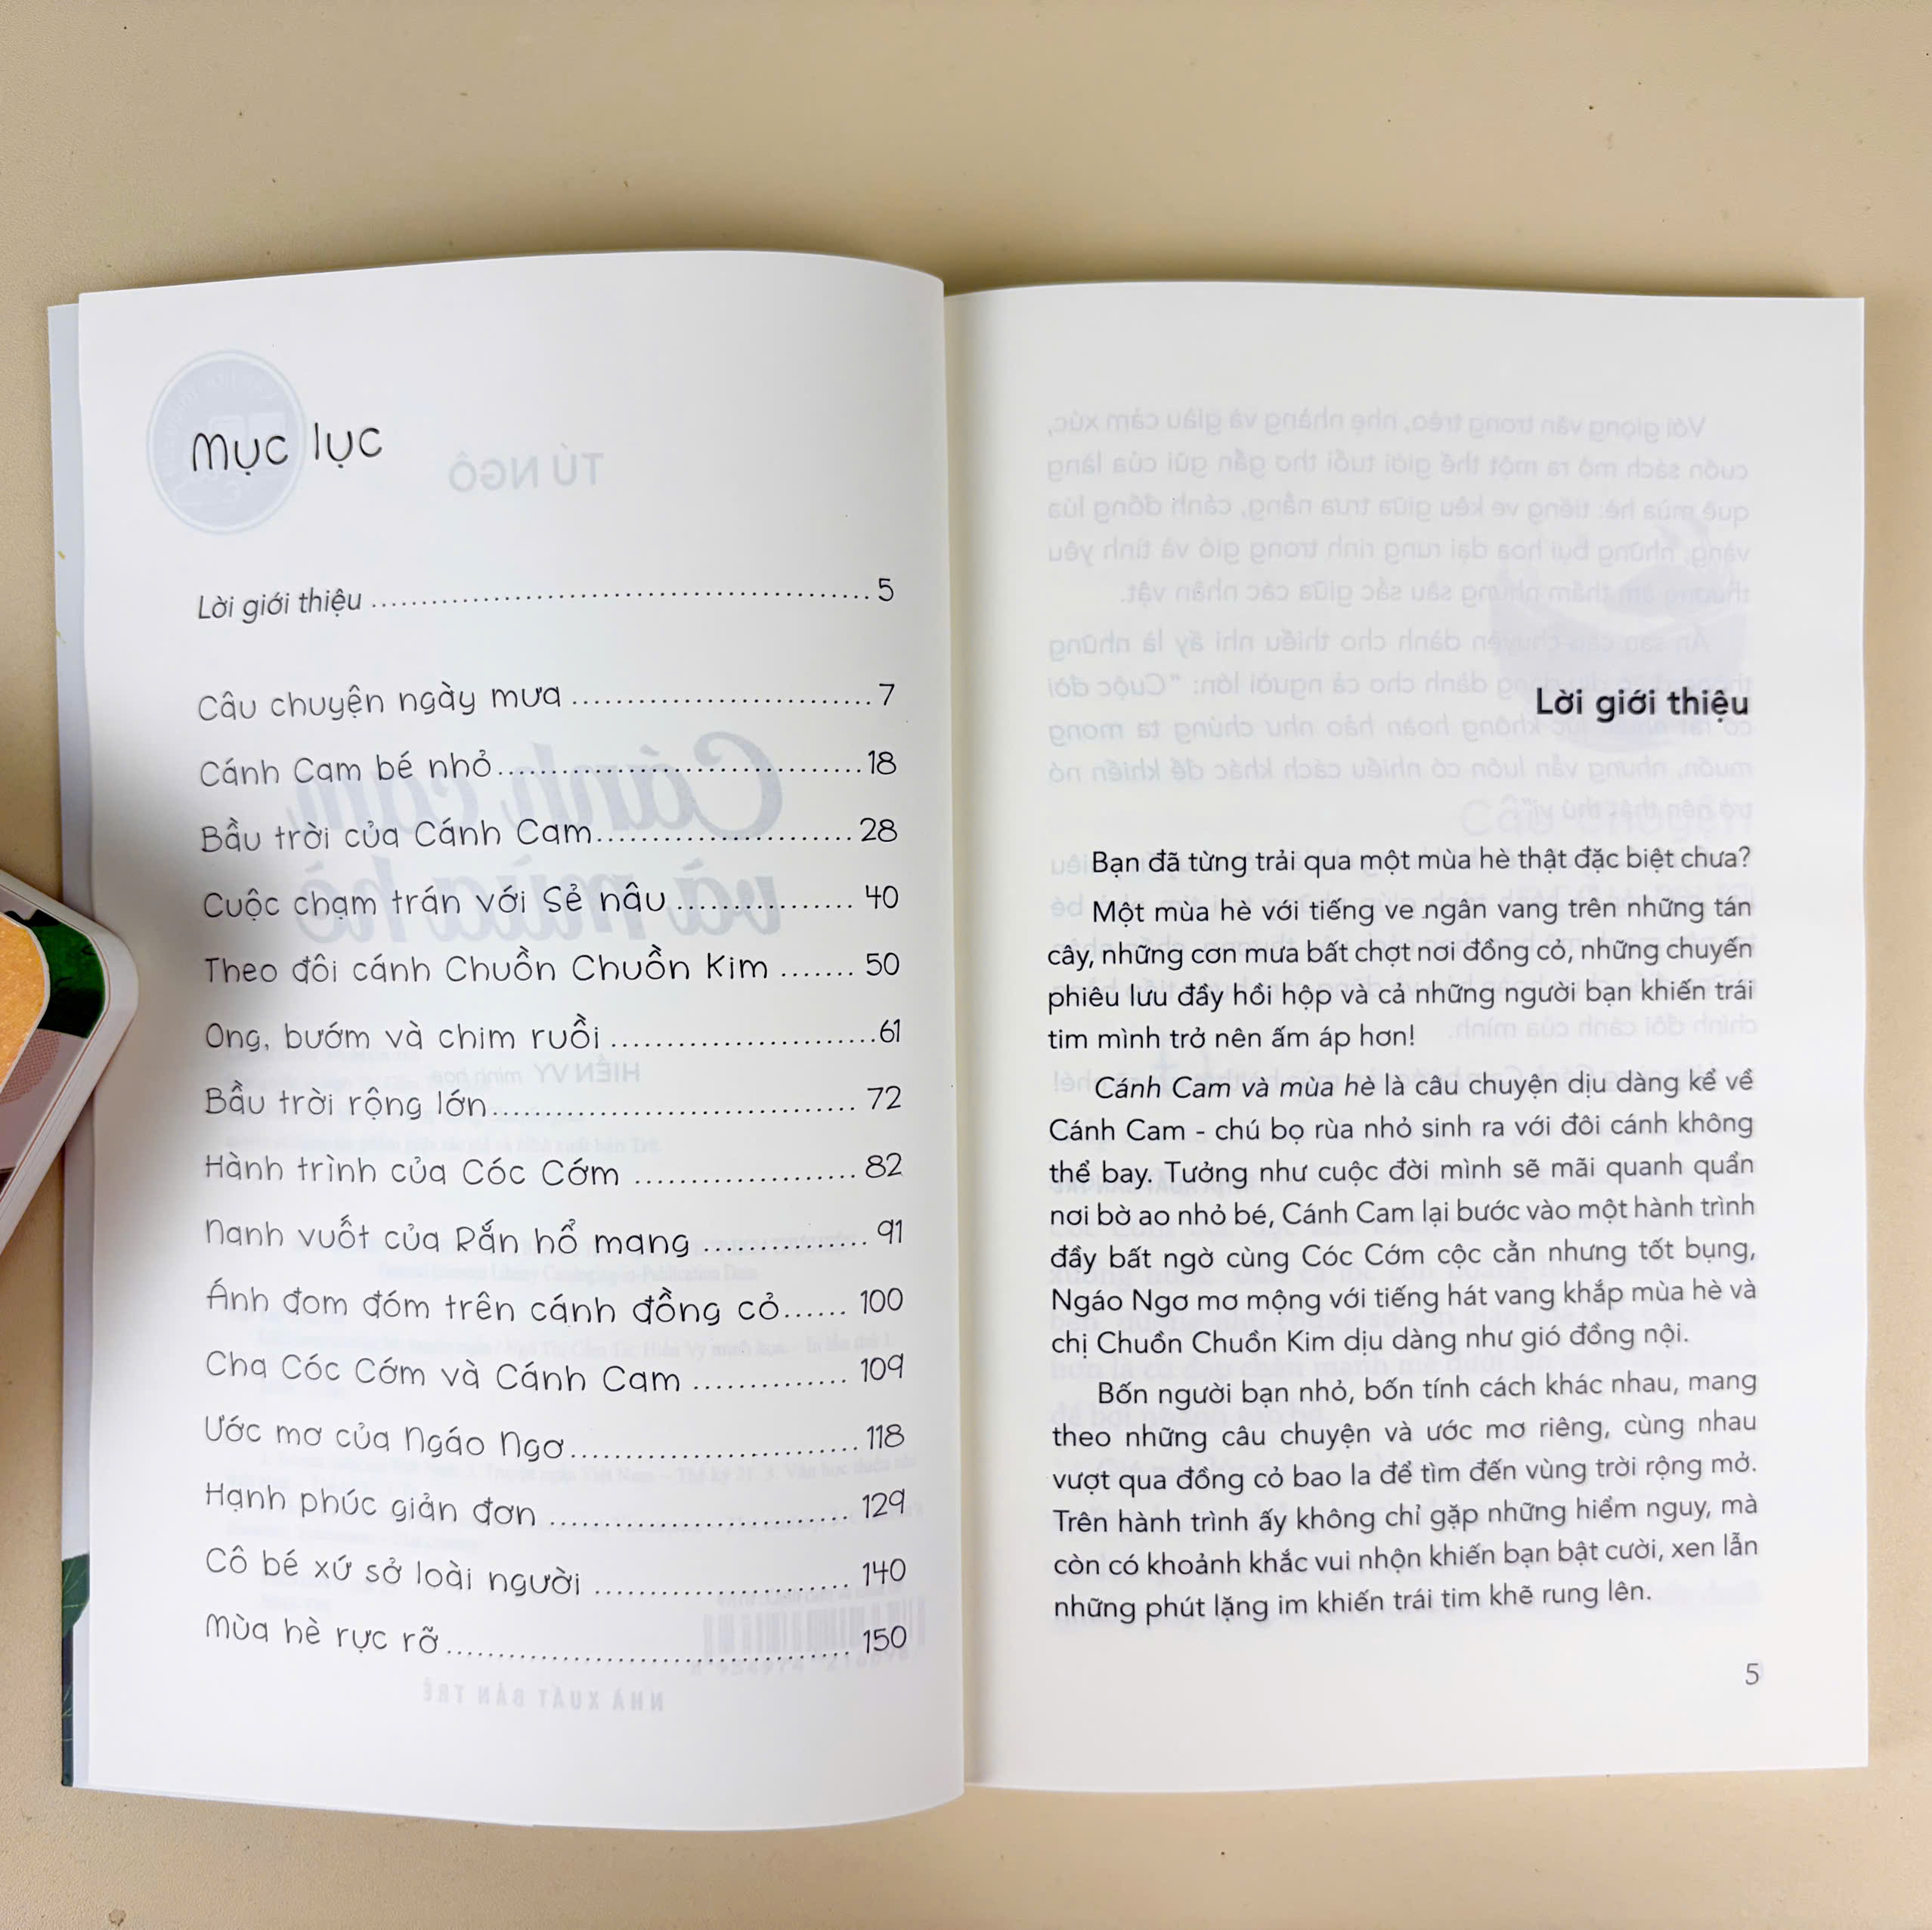 Mục lục
Lời giới thiệu .................................................. 5
Câu chuyện ngày mưa .............................. 7
Cánh Cam bé nhỏ..................................... 18
Bầu trời của Cánh Cam.......................... 28
Cuộc chạm trán với Sẻ nâu ................. 40
Theo đôi cánh Chuồn Chuồn Kim ....... 50
Ong, bướm và chim ruồi ...........................61
Bầu trời rộng lớn..................................... 72
Hành trình của Cóc Cớm ...................... 82
Nanh vuốt của Rắn hổ mang ................ 91
Ánh đom đóm trên cánh đồng cỏ...... 100
Cha Cóc Cớm và Cánh Cam ............... 109
Ước mơ của Ngáo Ngơ............................. 118
Hạnh phúc giản đơn .............................. 129
Cô bé xứ sở loài người .......................... 140
Mùa hè rực rỡ........................................ 150
Lời giới thiệu
Bạn đã từng trải qua một mùa hè thật đặc biệt chưa?
Một mùa hè với tiếng ve ngân vang trên những tán
cây, những cơn mưa bất chợt nơi đồng cỏ, những chuyến
phiêu lưu đầy hồi hộp và cả những người bạn khiến trái
tim mình trở nên ấm áp hơn!
Cánh Cam và mùa hè là câu chuyện dịu dàng kể về
Cánh Cam - chú bọ rùa nhỏ sinh ra với đôi cánh không
thể bay. Tưởng như cuộc đời mình sẽ mãi quanh quẩn
nơi bờ ao nhỏ bé, Cánh Cam lại bước vào một hành trình
đầy bất ngờ cùng Cóc Cớm cộc cằn nhưng tốt bụng,
Ngáo Ngơ mơ mộng với tiếng hát vang khắp mùa hè và
chị Chuồn Chuồn Kim dịu dàng như gió đồng nội.
Bốn người bạn nhỏ, bốn tính cách khác nhau, mang
theo những câu chuyện và ước mơ riêng, cùng nhau
vượt qua đồng cỏ bao la để tìm đến vùng trời rộng mở.
Trên hành trình ấy không chỉ gặp những hiểm nguy, mà
còn có khoảnh khắc vui nhộn khiến bạn bật cười, xen lẫn
những phút lặng im khiến trái tim khẽ rung lên.
5